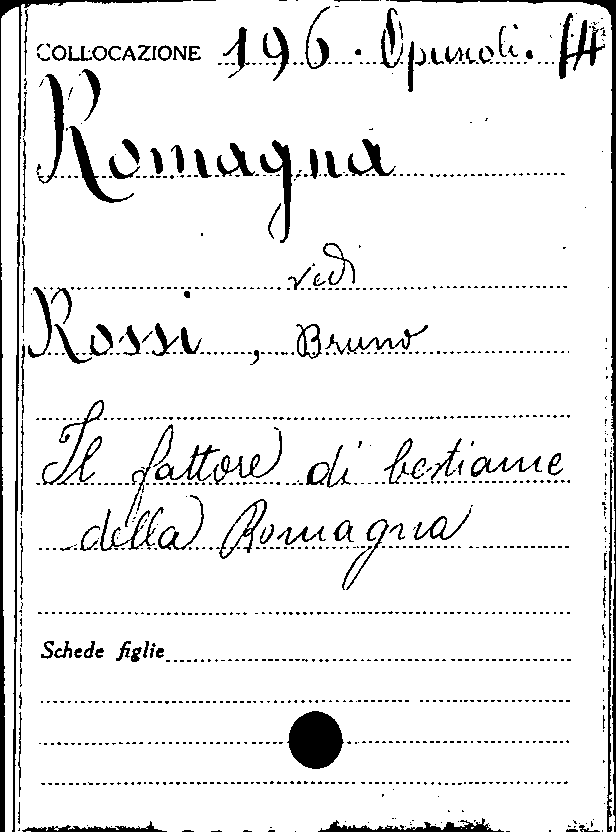 COLLOCAZIONE 196. Opuscoli.
Romagna
vedi
Rossi, Bruno
Il fattore di bestiame
della Romagna
Schede figlie